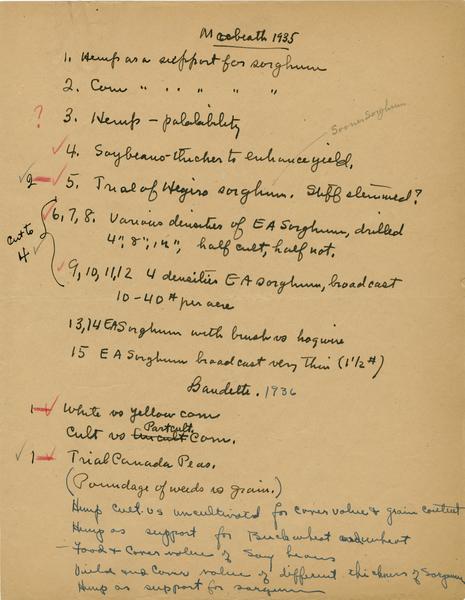 Macbeath 1935
1. Hemp as a support for sorghum
2. Corn " " " " "
? 3. Hemp - palatability
Sooner Sorghum
4. Soybeans - thicker to enhance yield.
2 5. Trial of Hegira sorghum. Stiff stemmed?
6, 7, 8. Various densities of EA Sorghum, drilled
cut to 4
4", 8", 14", half cult, half not.
9, 10, 11, 12 4 densities EA sorghum, broadcast
10-40 # per acre
13, 14 EA Sorghum with brush vs hogwire
15 EA Sorghum broadcast very thin (1 1/2 #)
Baudette. 1936
1 White vs Yellow corn
Cult vs Part cult Corn.
1 Trial Canada Peas.
(Poundage of weeds vs grain.)
Hemp cult. vs uncultivated for cover value & grain content
Hemp as support for Buckwheat
- Food & Cover value of Soy beans
Yield and Cover value of different thickness of Sorgum
Hemp as support for sorgum